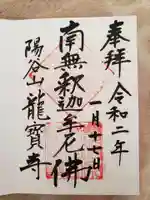 奉拝 令和二年
一月十七日
南無釋迦牟尼佛
陽谷山龍寳寺